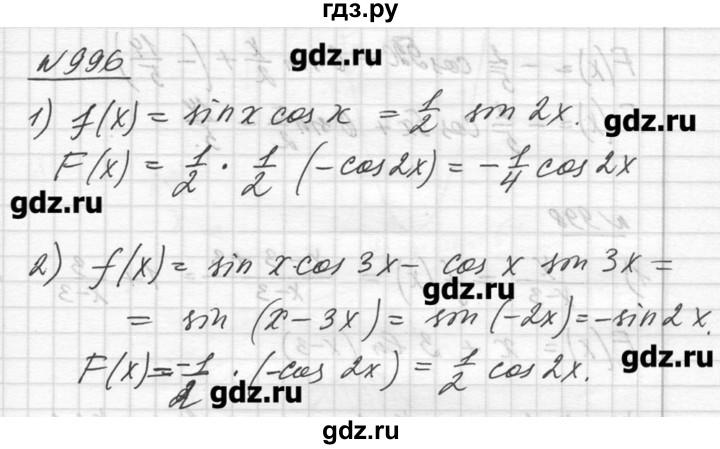 гдз.ру
№996
gdz.ru
1) f(x) = sin x cos x = 1/2 sin 2x.
gdz.ru
F(x) = 1/2 · 1/2 (-cos 2x) = -1/4 cos 2x
gdz.ru
2) f(x) = sin x cos 3x - cos x sin 3x =
gdz.ru
= sin (x - 3x) = sin (-2x) = -sin 2x.
gdz.ru
F(x) = -1/2 · (-cos 2x) = 1/2 cos 2x.
gdz.ru
gdz.ru